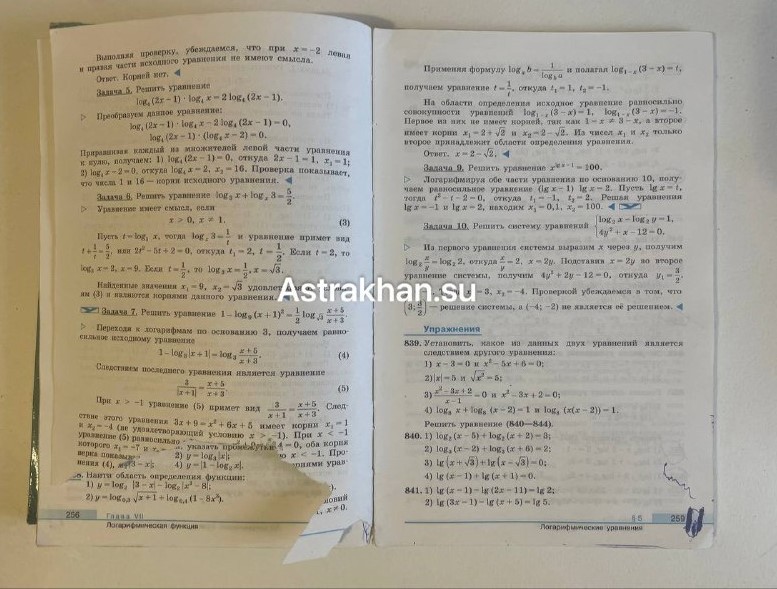 Выполняя проверку, убеждаемся, что при x=−2 левая
и правая части исходного уравнения не имеют смысла.
Ответ. Корней нет. ◄
Задача 5. Решить уравнение
log₄(2x−1)·log₄ x=2 log₄(2x−1).
▷ Преобразуем данное уравнение:
log₄(2x−1)·log₄ x−2 log₄(2x−1)=0,
log₄(2x−1)·(log₄ x−2)=0.
Приравнивая каждый из множителей левой части уравнения
к нулю, получаем: 1) log₄(2x−1)=0, откуда 2x−1=1, x₁=1;
2) log₄ x−2=0, откуда log₄ x=2, x₂=16. Проверка показывает,
что числа 1 и 16 — корни исходного уравнения. ◄
Задача 6. Решить уравнение log₃ x+logₓ 3=5/2.
▷ Уравнение имеет смысл, если
x>0, x≠1. (3)
Пусть t=log₃ x, тогда logₓ 3=1/t и уравнение примет вид
t+1/t=5/2, или 2t²−5t+2=0, откуда t₁=2, t=1/2. Если t=2, то
log₃ x=2, x=9. Если t=1/2, то log₃ x=1/2, x=√3.
Найденные значения x₁=9, x₂=√3
ям (3) и являются корнями данного уравнения.
Задача 7. Решить уравнение 1−log₉(x+1)²=1/2 log√₃ (x+5)/(x+3).
▷ Переходя к логарифмам по основанию 3, получаем равно-
сильное исходному уравнение
1−log₃|x+1|=log₃ (x+5)/(x+3). (4)
Следствием последнего уравнения является уравнение
3/|x+1|=(x+5)/(x+3). (5)
При x>−1 уравнение (5) примет вид 3/(x+1)=(x+5)/(x+3). След-
ствие этого уравнения 3x+9=x²+6x+5 имеет корни x₁=1
и x₂=−4 (не удовлетворяющий условию x>−1). При x<−1
уравнение (5) равносильно =0, оба корня
которого x₁=−7 и указать промежутки x<−1. Про-
верка показы 2) y=log₃|x|;
ния (4), 3−x|; 4) y=|1−log₂ x|. урав-
Найти область определения функции:
1) y=log₂ |3−x|−log₂ |x³−8|;
2) y=log₀,₃ √x+1+log₀,₄(1−8x³).
x≠0.
256 Глава VII
Логарифмическая функция
Применяя формулу logₐ b=1/log_b a и полагая log₁₋ₓ(3−x)=t,
получаем уравнение t=1/t, откуда t₁=1, t₂=−1.
На области определения исходное уравнение равносильно
совокупности уравнений log₁₋ₓ(3−x)=1, log₁₋ₓ(3−x)=−1.
Первое из них не имеет корней, так как 1−x≠3−x, а второе
имеет корни x₁=2+√2 и x₂=2−√2. Из чисел x₁ и x₂ только
второе принадлежит области определения уравнения.
Ответ. x=2−√2. ◄
Задача 9. Решить уравнение x^(lg x−1)=100.
▷ Логарифмируя обе части уравнения по основанию 10, полу-
чаем равносильное уравнение (lg x−1) lg x=2. Пусть lg x=t,
тогда t²−t−2=0, откуда t₁=−1, t₂=2. Решая уравнения
lg x=−1 и lg x=2, находим x₁=0,1, x₂=100. ◄
Задача 10. Решить систему уравнений {log₂ x−log₂ y=1,
4y²+x−12=0.
▷ Из первого уравнения системы выразим x через y, получим
log₂ x/y=log₂ 2, откуда x/y=2, x=2y. Подставив x=2y во второе
уравнение системы, получим 4y²+2y−12=0, откуда y₁=3/2,
=3, x₂=−4. Проверкой убеждаемся в том, что
(3; 3/2) — решение системы, а (−4; −2) не является её решением. ◄
Astrakhan.su
Упражнения
839. Установить, какое из данных двух уравнений является
следствием другого уравнения:
1) x−3=0 и x²−5x+6=0;
2) |x|=5 и √x²=5;
3) (x²−3x+2)/(x−1)=0 и x²−3x+2=0;
4) log₈ x+log₈ (x−2)=1 и log₈ (x(x−2))=1.
Решить уравнение (840—844).
840. 1) log₂(x−5)+log₂(x+2)=3;
2) log₃(x−2)+log₃(x+6)=2;
3) lg(x+√3)+lg(x−√3)=0;
4) lg(x−1)+lg(x+1)=0.
841. 1) lg(x−1)−lg(2x−11)=lg 2;
2) lg(3x−1)−lg(x+5)=lg 5.
§ 6 259
Логарифмические уравнения